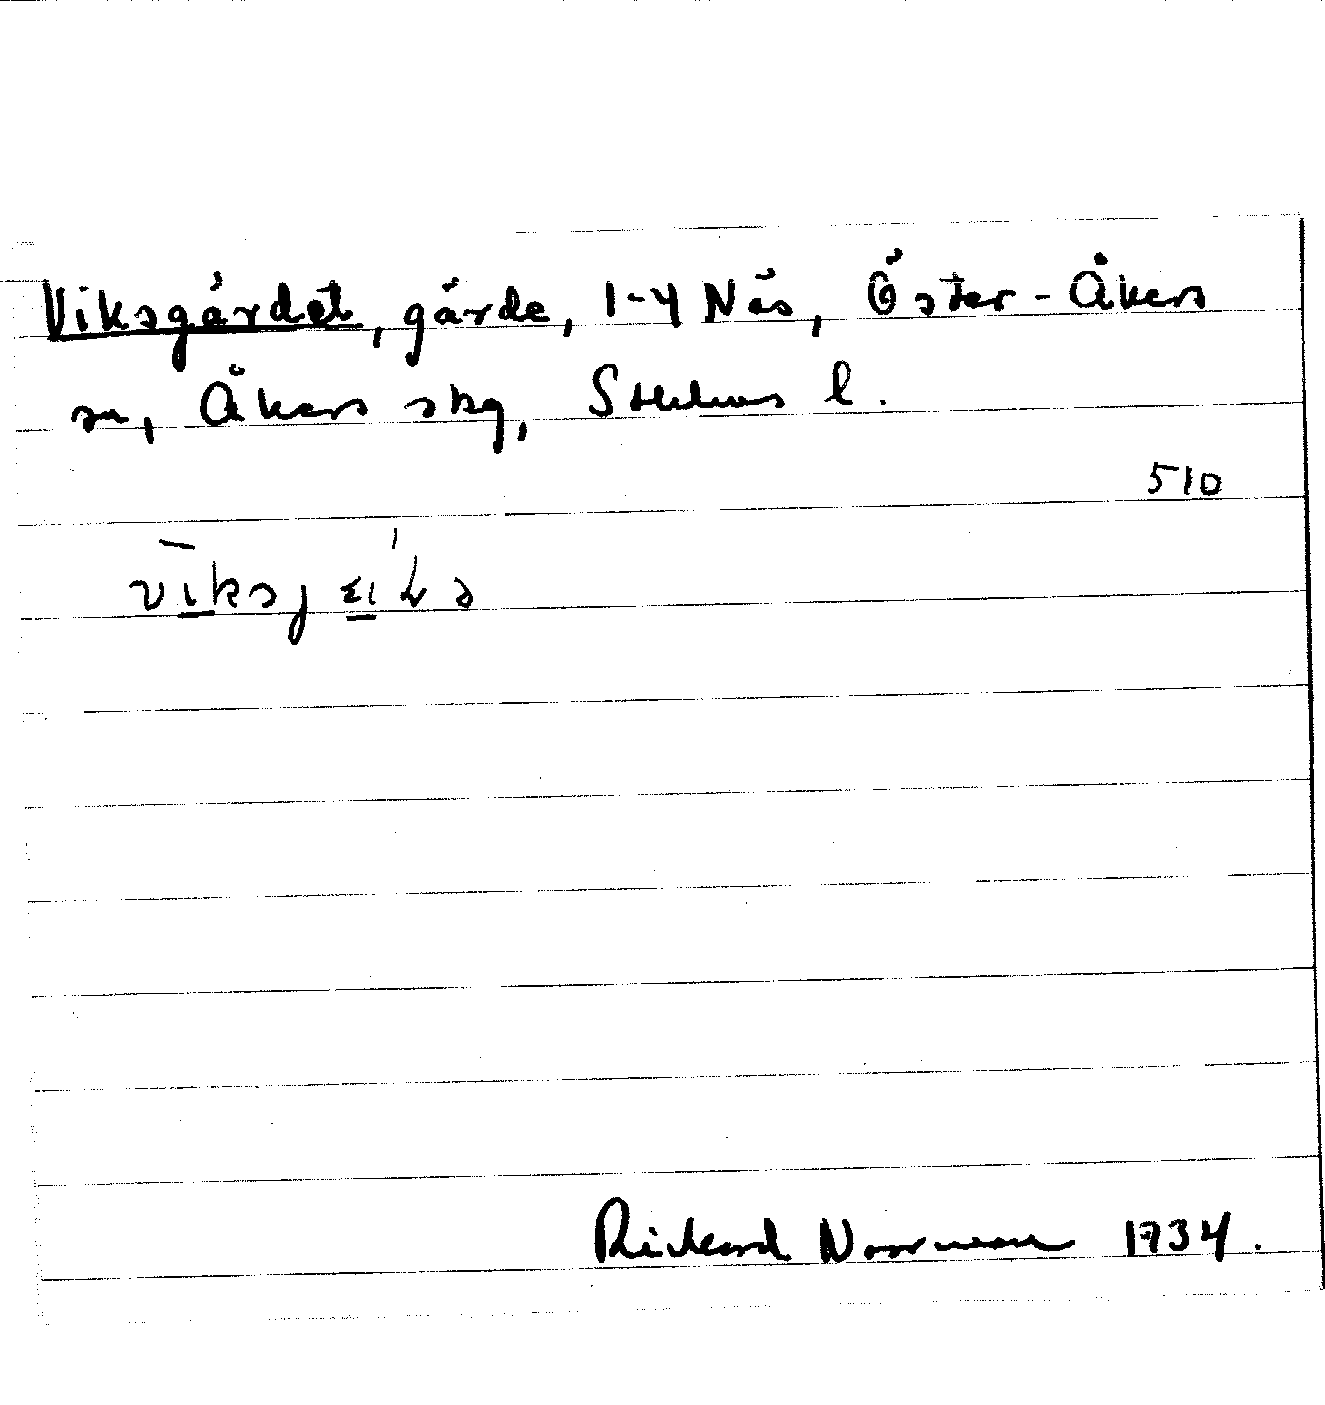 Viksgärdet, gärde, 1-4 Näs, Öster-Åkers
sn, Åkers skg, Stockholms l.
510
Rickard Noorman 1934.